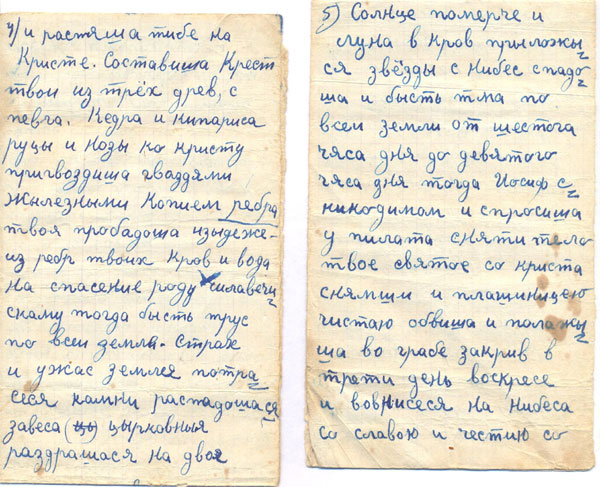 4) и растяша тибе на
Кристе. Составиша Крест
твои из трёх древ, с
певга. Кедра и кипариса
руцы и нозы ко кристу
пригвоздиша гваздями
Жилезными Копием ребра
твоя пробадоша изыдеже-
из ребр твоих кров и вода
на спасение роду чилавечи
скаму тогда бысть трус
по всеи земли. Страх
и ужас землея потра
сеся камни распадошася
завеса (цы) цырковныя
раздрашася на двоя
5) Солнце померче и
луна в кров приложы
ся звёзды с нибес спадо
ша и бысть тма по
всеи земли от шестога
часа дня до девятого
часа дня тогда Иосиф с
никодимам и спросиша
у пилата сняти тело
твое святое со криста
снямши и плашиницею
чистаю обвиша и палажы
ша во гробе закрив в
трети день воскресе
и вовнисеся на нибеса
со славою и честию со